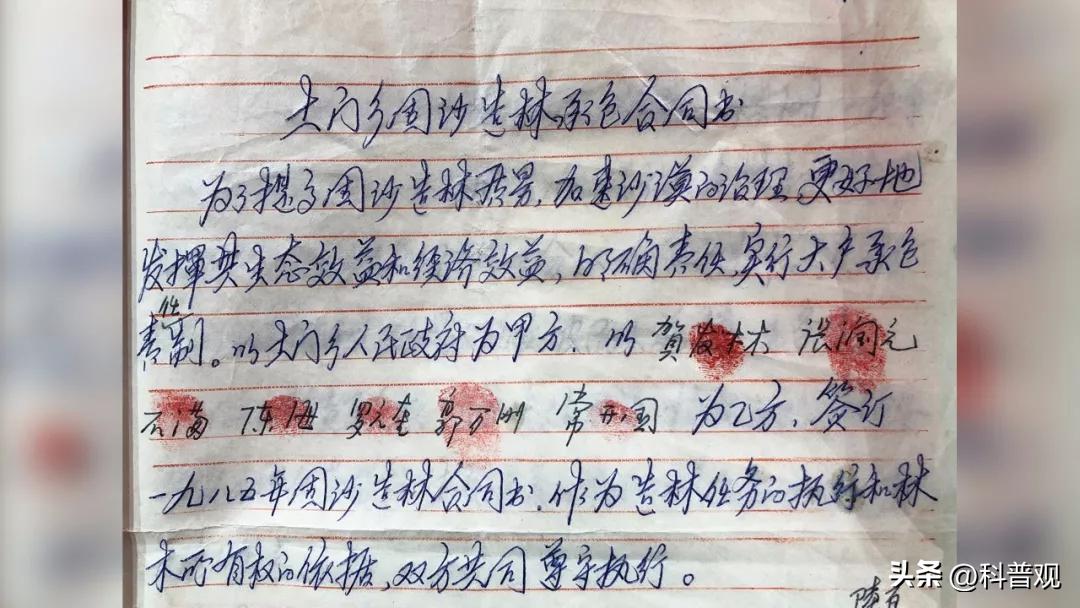 土门乡固沙造林承包合同书
为了提高固沙造林质量,加速沙漠的治理,更好地
发挥其生态效益和经济效益,明确责任,实行大户承包
责任制。以土门乡人民政府为甲方,以 賀发林 张润元
石满 陈海 罗元奎 郭万刚 常开国 为乙方,签订
一九八五年固沙造林合同书,作为造林任务的执行和林
木所有权的依据,双方共同尊守执行。
头条 @科普观